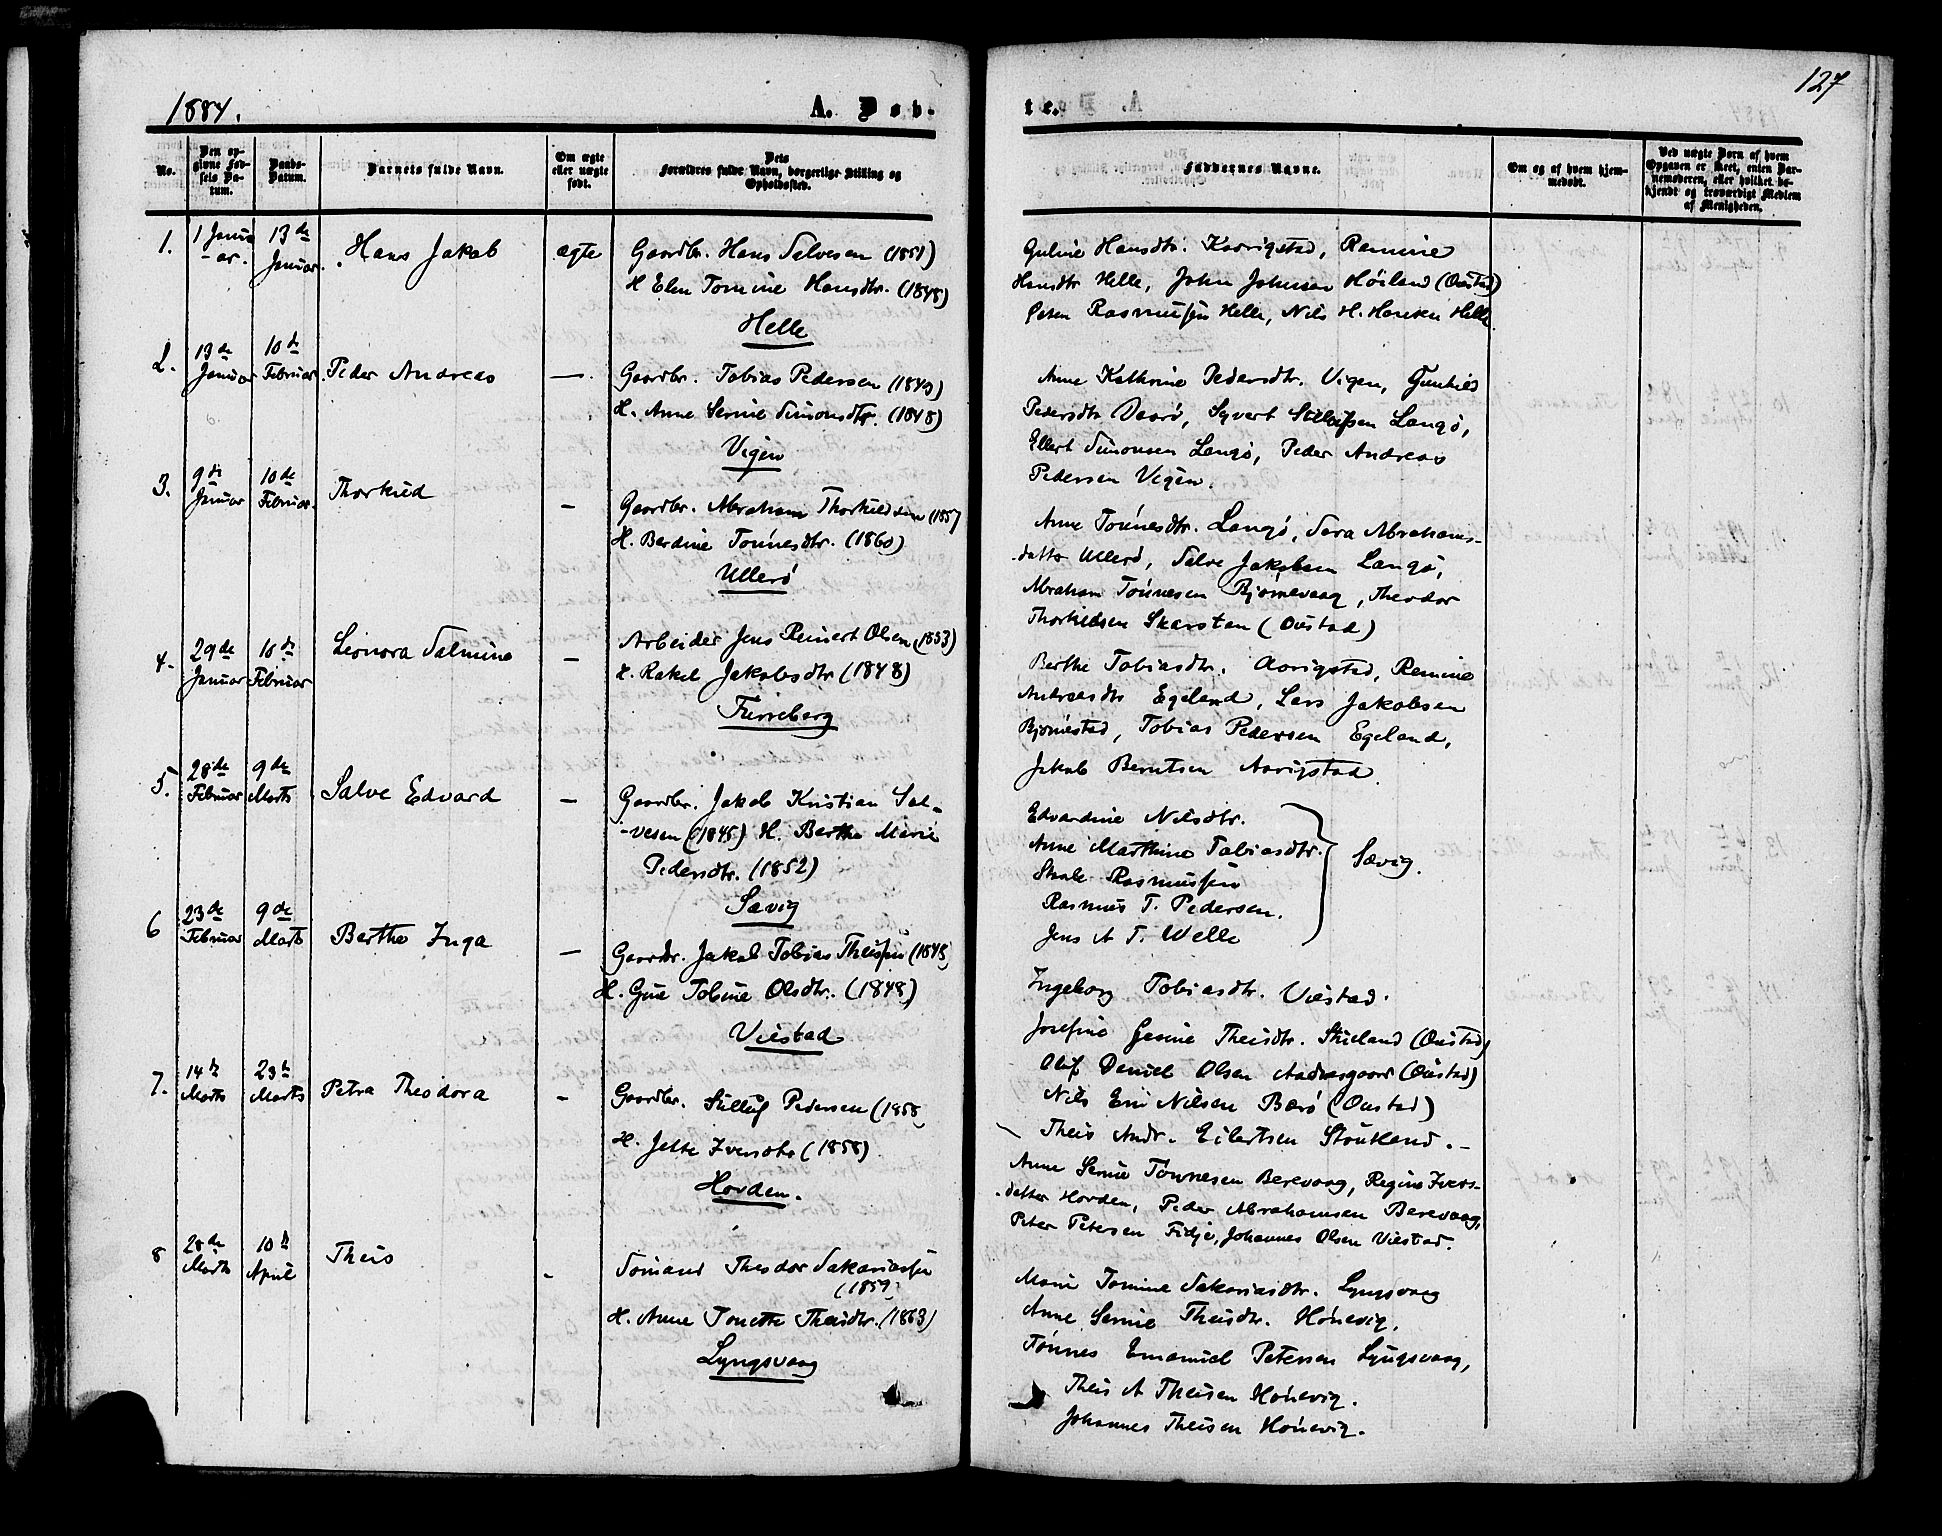 127
1884.
A. Døb-
te.
No.
Den op-
givne Fød-
sels Da-
tum.
Daabs-
Datum.
Barnets fulde Navn.
Om ægte
eller uægte
født.
Dets
Forældres fulde Navn, borgerlige Stilling og
Opholdssted.
Faddernes Navne.
Om og af hvem hjem-
medøbt.
Ved uægte Børn af hvem
Opgaven er skeet, enten Bar-
nemoderen, eller hvilket be-
kjendt og troværdigt Medlem
af Menigheden.
1.
1 Janu-
ar.
13de
Januar.
Hans Jakob
ægte
Gaardbr. Hans Salvesen (1851)
H Elen Tomine Hansdtr. (1848)
Helle
Guline Hansdtr. Ramine
Hansdtr Helle, John Johnsen Höiland (Oustad)
Rasmussen Helle, Nils H. Hansen Helle.
2.
13de
Januar
10de
Februar.
Peder Andreas
—
Gaardbr. Tobias Pedersen (1849)
H. Anne Serine Simonsdtr. (1848)
Vigen
Anne Kathrine Pedersdtr. Vigen, Gunhild
Pedersdtr Syvert Langö,
Ellert Simonsen Langö, Peder Andreas
Pedersen Vigen.
3.
9de
Januar
10de
Februar.
Thorkild
—
Gaardbr. Abraham Thorkildsen (1857
H. Berdine Tönnesdtr. (1860)
Ullerö
Anne Tönnesdtr. Langö, Sara Abrahams-
datter Ullerö, Salve Jakobsen Langö,
Abraham Tönnesen Björnevaag, Theodor
Thorkildsen Skarsten (Oustad)
4.
29de
Januar
10de
Februar
Leonora Salmine
—
Arbeider Jens Reinert Olsen (1853)
H. Rakel Jakobsdtr (1848)
Furreberg
Berthe Tobiasdtr. Aarigstad, Ramine
Andreasdtr Egeland, Lars Jakobsen
Björnestad, Tobias Pedersen Egeland,
Jakob Berntsen Aarigstad.
5.
28de
Februar
9de
Marts
Salve Edvard
—
Gaardbr. Jakob Kristian Sal-
-vesen (1845) H. Berthe Marie
Pedersdtr. (1852)
Sævig
Edvardine Nilsdtr.
Anne Marthine Tobiasdtr.
Rasmussen
Rasmus T. Pedersen.
Jens A T. Welle
Sævig.
6
23de
Februar
9de
Marts
Berthe Inga
—
Gaardbr. Jakob Tobias Theisen (1848)
H. Gine Tobine Olsdtr. (1848)
Viestad
Ingeborg Tobiasdtr. Viestad.
Josefine Gesine Theisdtr. (Oustad)
Oluf Daniel Olsen (Oustad)
Nils Nilsen Barö (Oustad)
Theis Andr. Eilertsen
7.
14de
Marts
23de
Marts
Petra Theodora
—
Gaardbr. Sülluf Pedersen (1858
H. Jette Iversdtr (1858)
Horden.
Anne Serine Tönnesen Berevaag, Regine Ivers-
datter Horden, Peder Abrahamsen Berevaag,
Peter Petersen Fidje, Johannes Olsen Viestad.
8
28de
Marts
10de
April
Theis
-
Sömand Theodor Sakariassen
(1859)
H. Anne Tonette Theisdtr. (1863)
Lyngsvaag
Marie Tomine Sakariasdtr. Lyngsvaag
Anne Serine Theisdtr. Hönevig,
Tönnes Emanuel Petersen Lyngsvaag,
Theis A Theisen Hönevig.
Johannes Theisen Hönevig.